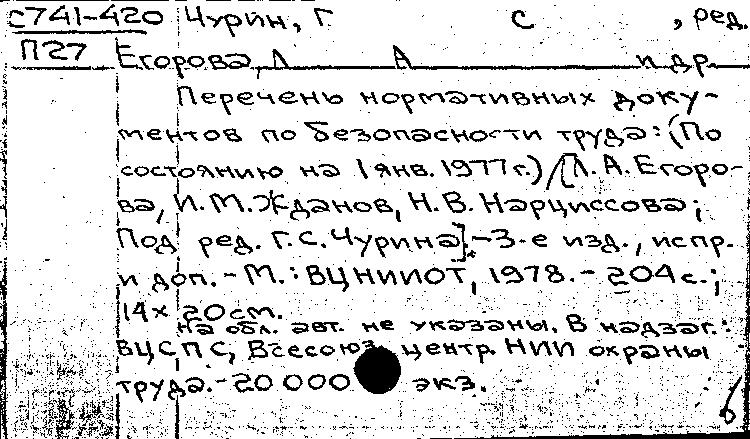 с741-420 Чурин, Г. С , ред.
П27 Егорова, Л А и др.
Перечень нормативных доку-
ментов по безопасности труда: (По
состоянию на 1 янв. 1977 г.) / [Л. А. Егоро-
ва, И. М. Жданов, Н. В. Нарциссова;
Под ред. Г. С. Чурина]. - 3-е изд., испр.
и доп. - М.: ВЦНИИОТ, 1978. - 204 с.;
14 × 20 см.
На обл. авт. не указаны. В надзаг.:
ВЦСПС, Всесоюз. центр. НИИ охраны
труда. - 20 000 экз.
б